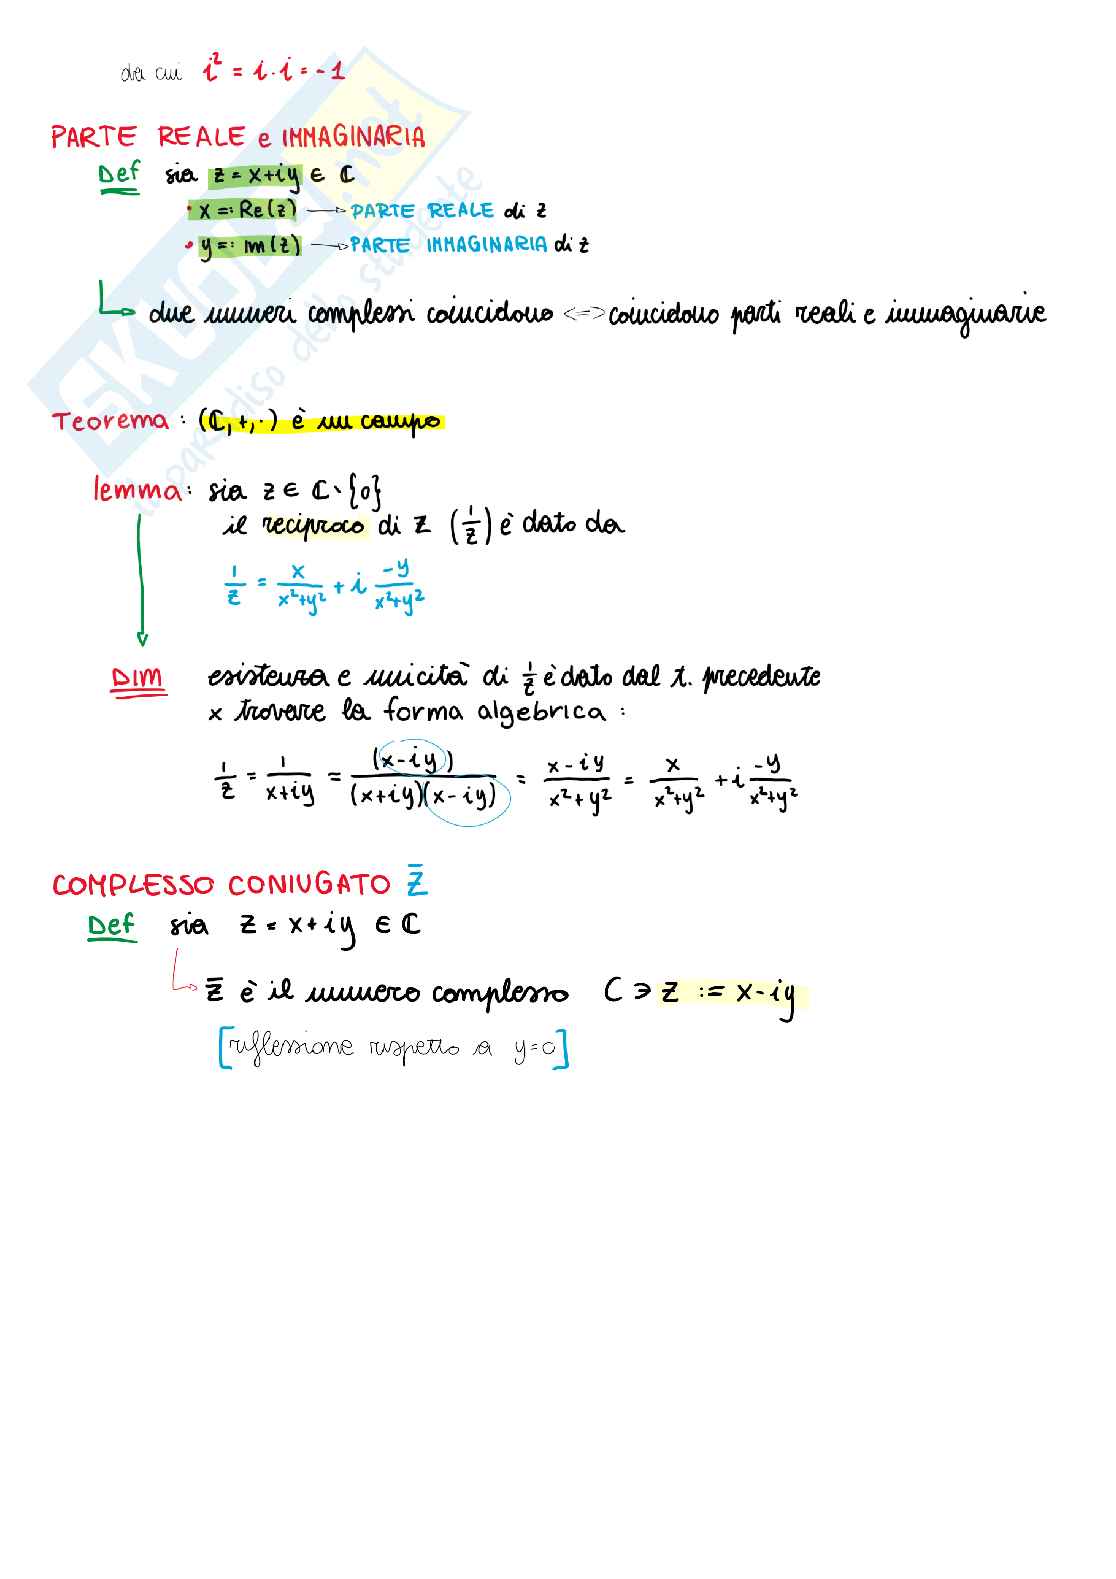 da cui i² = i · i = -1
PARTE REALE e IMMAGINARIA
Def sia z = x+iy ∈ ℂ
• x =: Re(z) → PARTE REALE di z
• y =: Im(z) → PARTE IMMAGINARIA di z
↳ due numeri complessi coincidono <=> coincidono parti reali e immaginarie
Teorema: (ℂ, +, ·) è un campo
lemma: sia z ∈ ℂ \ {0}
il reciproco di z (1/z) è dato da
1/z = x/(x²+y²) + i -y/(x²+y²)
DIM esistenza e unicità di 1/z è dato dal t. precedente
x trovare la forma algebrica:
1/z = 1/(x+iy) = (x-iy)/((x+iy)(x-iy)) = (x-iy)/(x²+y²) = x/(x²+y²) + i -y/(x²+y²)
COMPLESSO CONIUGATO z̄
Def sia z = x+iy ∈ ℂ
↳ z̄ è il numero complesso C ∋ z := x-iy
[riflessione rispetto a y=0]
SKUOLA.net
il paradiso dello studente